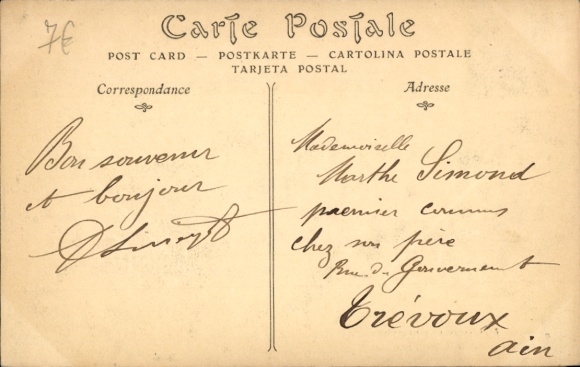 7€
Carte Postale
POST CARD — POSTKARTE — CARTOLINA POSTALE
TARJETA POSTAL
Correspondance
Adresse
Bon souvenir
et bonjour
Mademoiselle
Marthe Simond
premier commis
chez son père
Rue du Gouvernement
Trévoux
Ain